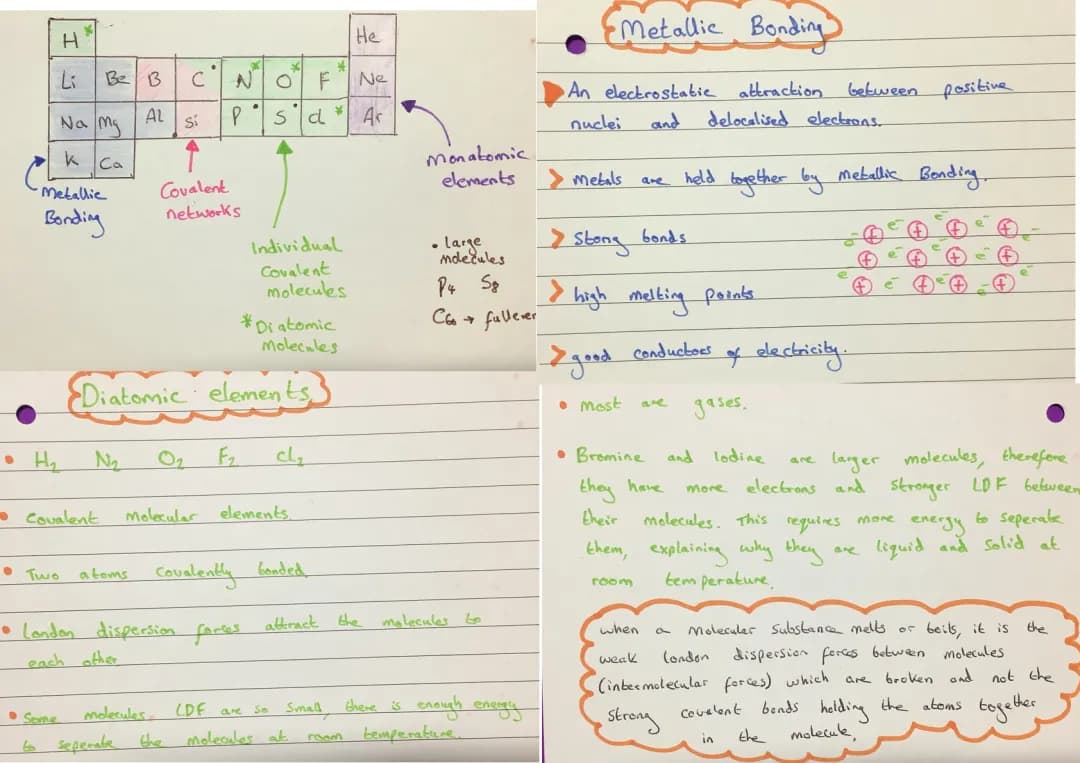 H*
He
Li Be B C• N* O* F* Ne
Na Mg Al Si P• S• Cl* Ar
K Ca
Metallic
Bonding
Covalent
networks
Individual
Covalent
molecules
*Diatomic
Molecules
Monatomic
elements
• large
molecules
P₄ S₈
C₆₀ → fulleren
Metallic Bonding
An electrostatic attraction between positive
nuclei and delocalised electrons.
> Metals are held together by Metallic Bonding.
> Stong bonds
> high melting points
> good conductors of electricity.
e⁻ + e⁻ + e⁻ + e⁻ + e⁻
+ e⁻ + e⁻ + e⁻ +
e + e⁻ + + e⁻ + e⁻
Diatomic elements
• H₂ N₂ O₂ F₂ Cl₂
• Covalent molecular elements
• Two atoms covalently bonded
• London dispersion forces attract the molecules to
each other
• Some molecules LDF are so small, there is enough energy
to seperate the molecules at room temperature.
• Most are gases.
• Bromine and Iodine are larger molecules, therefore
they have more electrons and stronger LDF between
their molecules. This requires more energy to seperate
them, explaining why they are liquid and solid at
room temperature.
when a Molecular Substance melts or boils, it is the
weak london dispersion forces between molecules
(intermolecular forces) which are broken and not the
strong covalent bonds holding the atoms together
in the molecule.